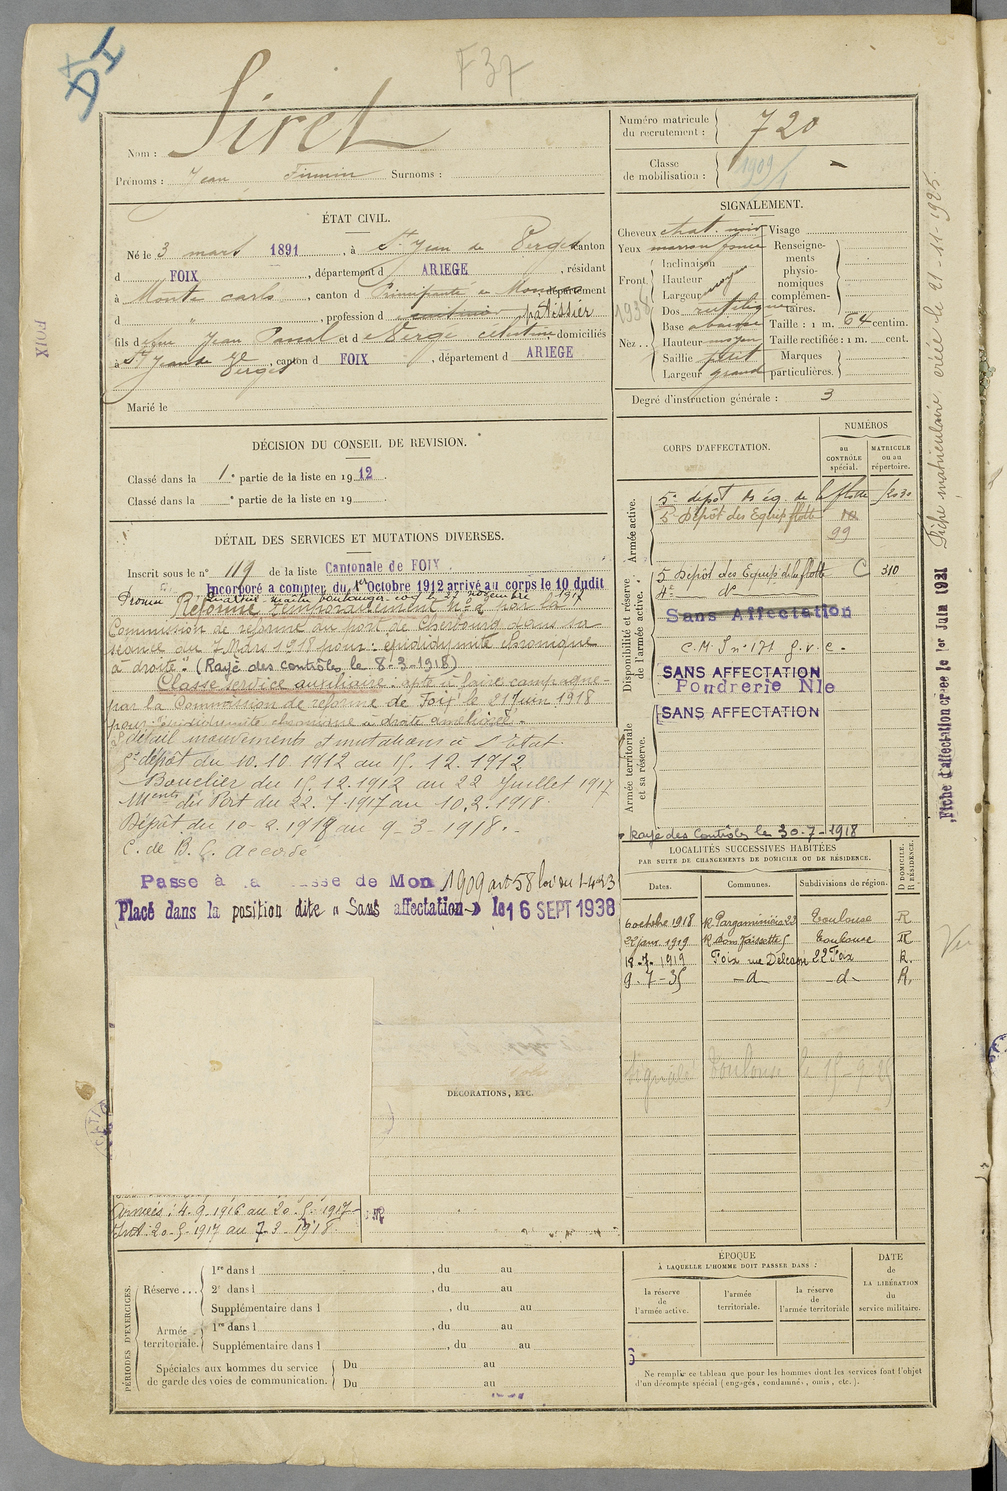 DI
F37
Nom : Siret
Prénoms : Jean Firmin Surnoms :
Numéro matricule du recrutement : 720
Classe de mobilisation : 1909/1
ÉTAT CIVIL.
Né le 3 mars 1891, à St Jean de Verges canton
d FOIX, département d ARIEGE, résidant
à Monte carlo, canton d Principauté de Monaco, département
d " , profession d pâtissier
fils d Jean et d Vergé célestine, domiciliés
à St Jean de Verges, canton d FOIX, département d ARIEGE
Marié le
SIGNALEMENT.
Cheveux chat. noir
Yeux marron foncé
Front Inclinaison
Hauteur moyen
Largeur
Nez Dos rectiligne
Base abaissé
Hauteur moyen
Saillie petit
Largeur grand
Visage
Renseignements physionomiques complémentaires.
Taille : 1 m. 64 centim.
Taille rectifiée : 1 m. cent.
Marques particulières.
1938
Degré d'instruction générale : 3
DÉCISION DU CONSEIL DE REVISION.
Classé dans la 1e partie de la liste en 1912.
Classé dans la e partie de la liste en 19
DÉTAIL DES SERVICES ET MUTATIONS DIVERSES.
Inscrit sous le n° 119 de la liste Cantonale de FOIX.
Incorporé à compter du 1er Octobre 1912 arrivé au corps le 10 dudit
Promu quartier maître boulanger coq le 22 novembre 1917
Réformé temporairement n° 2 par la
Commission de réforme du port de Cherbourg dans sa
séance du 7 Mars 1918 pour : épididymite chronique
à droite". (Rayé des contrôles le 8-3-1918)
Classé service auxiliaire : apte à faire campagne
par la Commission de réforme de Foix le 21 Juin 1918
pour : épididymite chronique à droite améliorée.
détail mouvements et mutations à l'Etat.
5e dépôt du 10.10 1912 au 15.12.1912
Bouclier du 15.12.1912 au 22 Juillet 1917
du Port du 22.7-1917 au 10.2.1918
Dépôt du 10-2.1918 au 9-3-1918.
C. de B. C. accordé
Passe à la classe de Mon 1909 art 58 loi du 1-4-23
Placé dans la position dite « Sans affectation » le 16 SEPT 1938
CORPS D'AFFECTATION.
NUMÉROS
au CONTRÔLE spécial.
MATRICULE ou au répertoire.
Armée active.
5e dépôt des éq. de la flotte
5 Dépôt des Equip flotte
99
Disponibilité et réserve de l'armée active.
5 Dépôt des Equip. de la flotte C 310
4e d°
Sans Affectation
C.M. I n° 171 G.V.C.
SANS AFFECTATION
Poudrerie Nle
SANS AFFECTATION
Armée territoriale et sa réserve.
Rayé des Contrôles le 30-7-1918
LOCALITÉS SUCCESSIVES HABITÉES
PAR SUITE DE CHANGEMENTS DE DOMICILE OU DE RÉSIDENCE.
Dates. Communes. Subdivisions de région. D DOMICILE. R RÉSIDENCE.
6 octobre 1918 R. Pargaminières 22 Toulouse R
22 janv. 1919 Toulouse R
18-7-1919 Foix rue Delcassé 22 Foix R.
9-7-35 -d- -d- R.
Signalé Toulouse le 15-9-25
DÉCORATIONS, ETC.
Armées : 4.9.1916 au 20.5.1917
Int : 20-5-1917 au 7-3-1918
PÉRIODES D'EXERCICES.
Réserve ... 1re dans l , du au
2e dans l , du au
Supplémentaire dans l , du au
Armée territoriale. 1re dans l , du au
Supplémentaire dans l , du au
Spéciales aux hommes du service de garde des voies de communication. Du au
Du au
ÉPOQUE
À LAQUELLE L'HOMME DOIT PASSER DANS :
la réserve de l'armée active.
l'armée territoriale.
la réserve de l'armée territoriale
DATE de LA LIBÉRATION du service militaire.
Ne remplir ce tableau que pour les hommes dont les services font l'objet
d'un décompte spécial (engagés, condamnés, omis, etc.).
Fiche d'affectation créée le 1er Juin 1921
Fiche matriculaire créée le 21-11-1925
FOIX
Vu